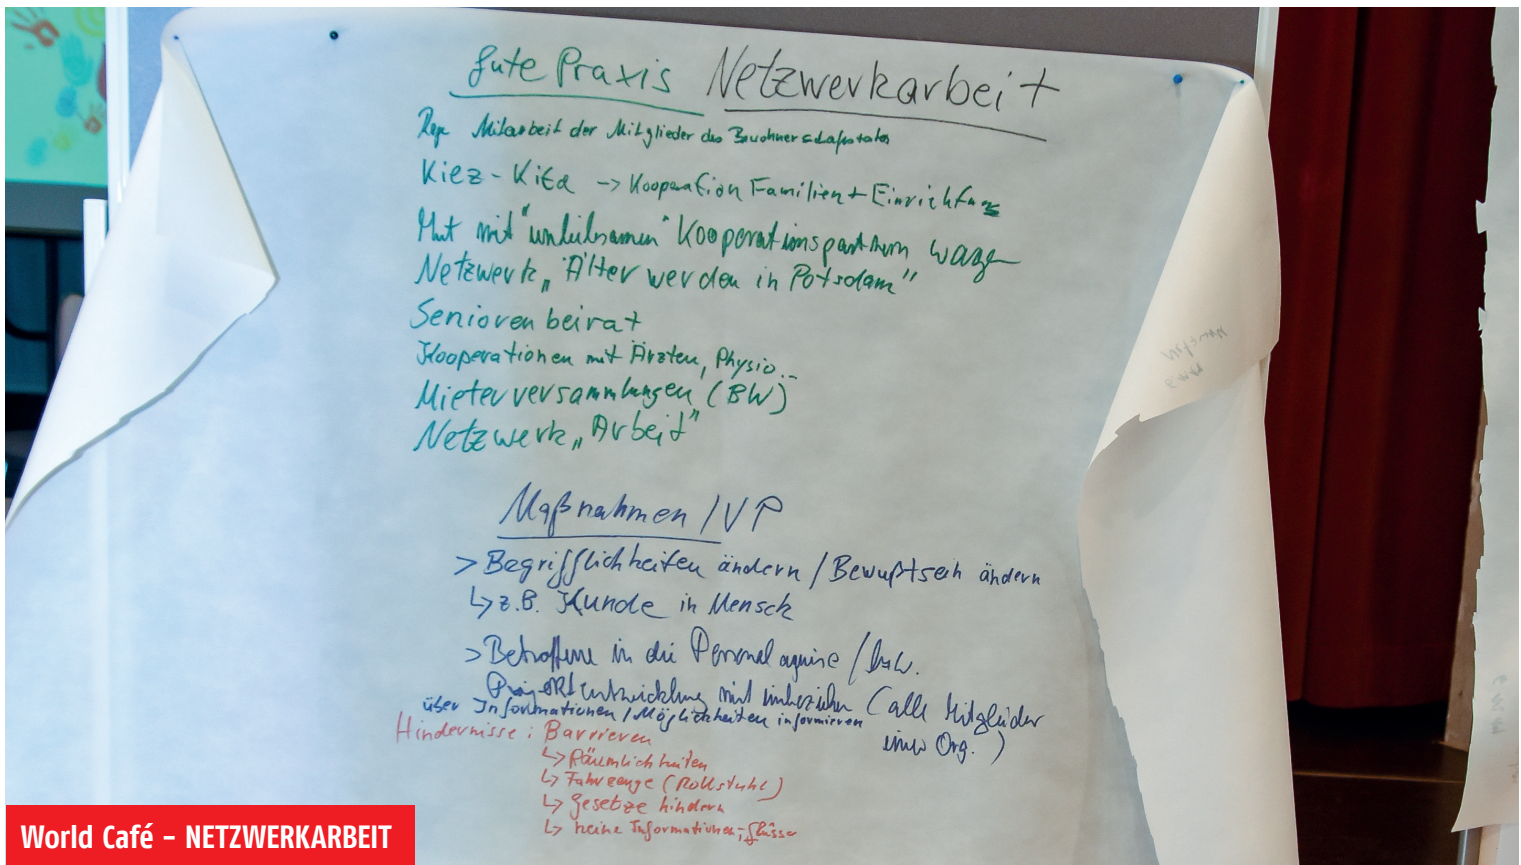 gute Praxis Netzwerkarbeit
Mitarbeit der Mitglieder des Bewohnerschaftsrates
Kiez-Kita -> Kooperation Familien + Einrichtung
Mut mit "unliebsamen" Kooperationspartnern wagen
Netzwerk „Älter werden in Potsdam"
Seniorenbeirat
Kooperationen mit Ärzten, Physio...
Mieterversammlungen (BW)
Netzwerk „Arbeit"
Maßnahmen / VP
> Begrifflichkeiten ändern / Bewußtsein ändern
↳ z.B. Kunde in Mensch
> Betroffene in die Personalaquise / bzw.
Projektentwicklung mit einbeziehen (alle Mitglieder
einer Org.)
über Informationen / Möglichkeiten informieren
Hindernisse: Barrieren
↳ Räumlichkeiten
↳ Fahrzeuge (Rollstuhl)
↳ Gesetze hindern
↳ keine Informations-flüsse
World Café – NETZWERKARBEIT